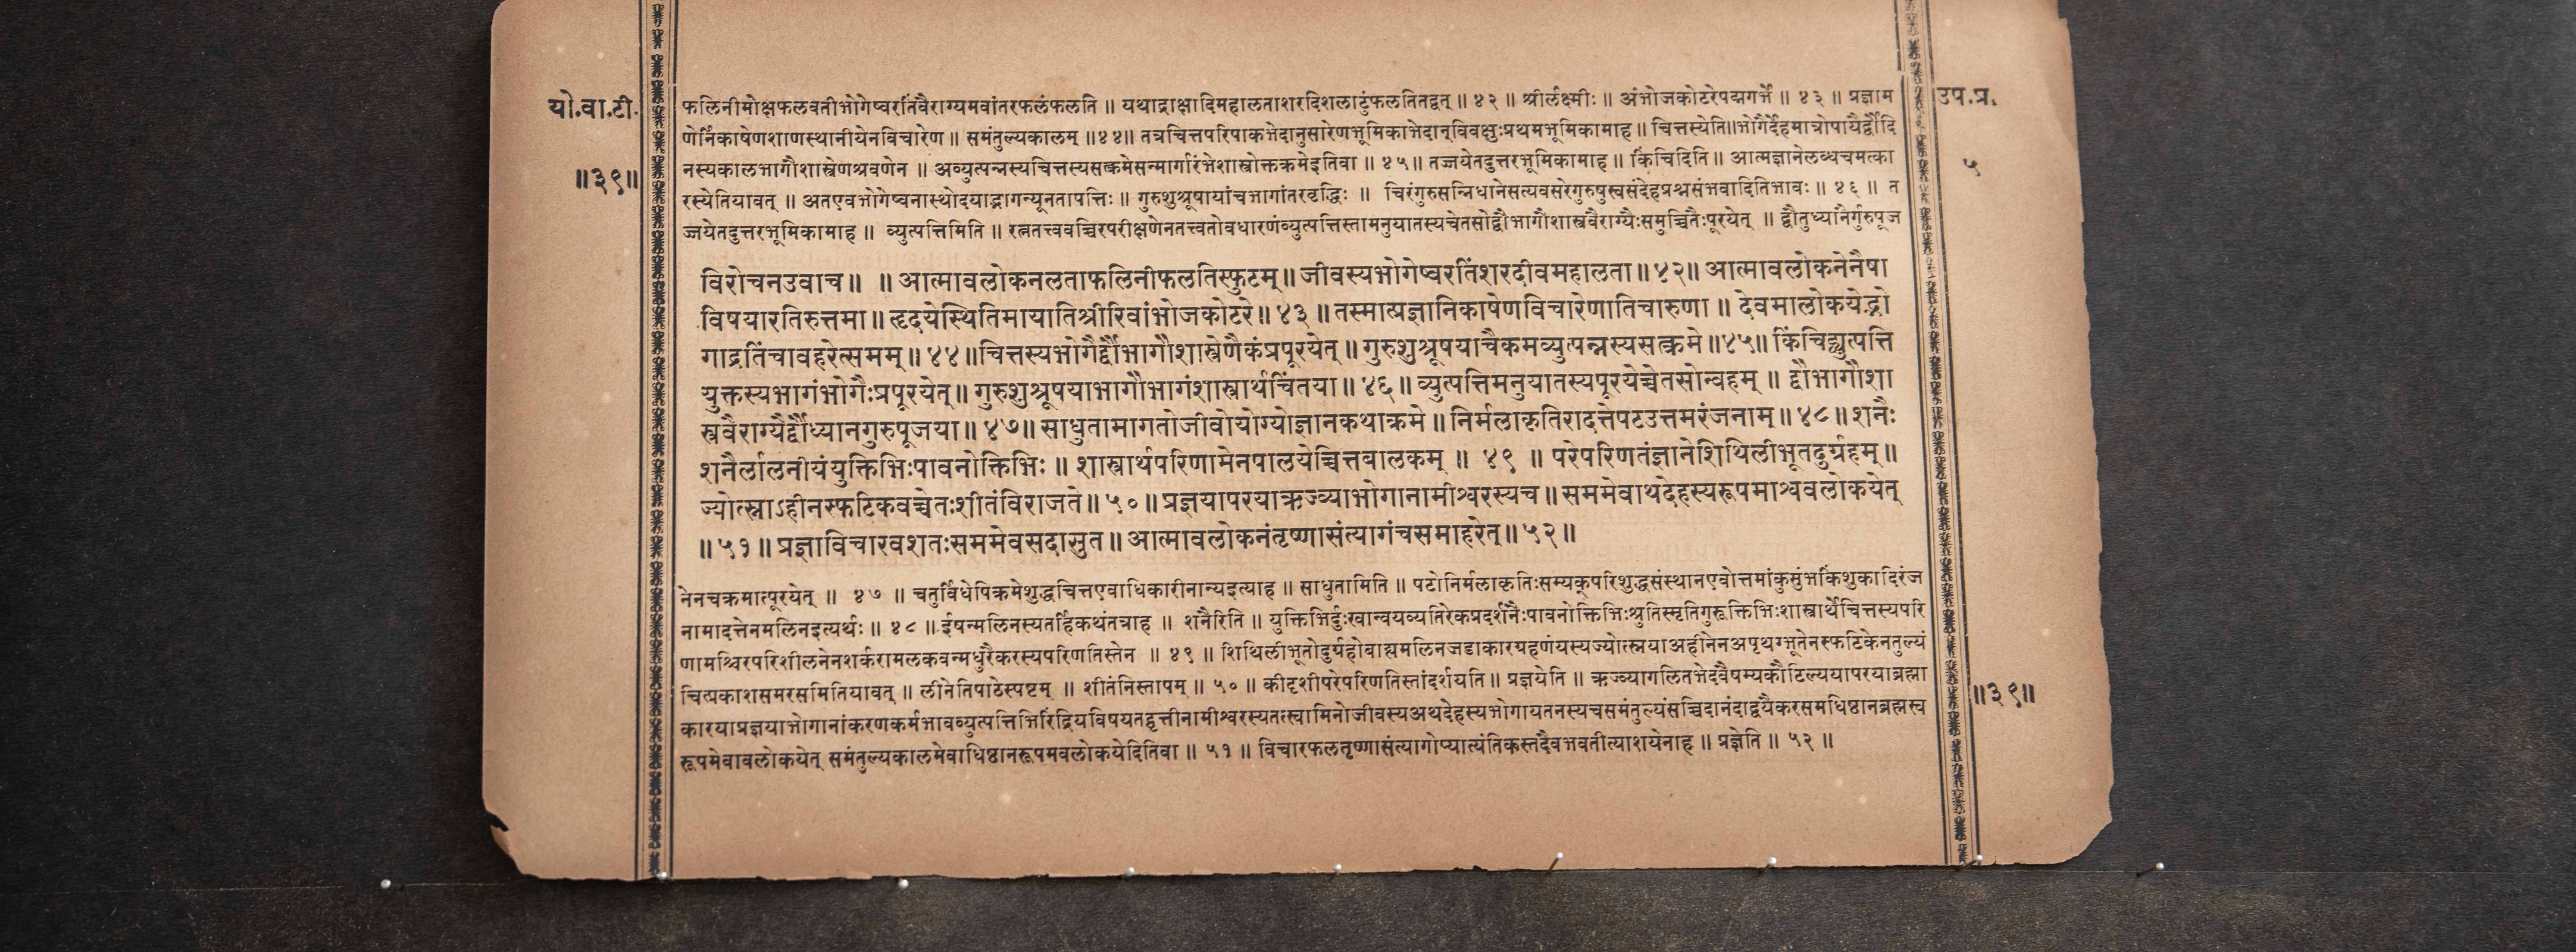 यो.वा.टी.
॥३९॥
फलिनीमोक्षफलवतीभोगेष्वरतिर्वैराग्यमवांतरफलंफलति ॥ यथाद्राक्षादिमहालताशरदिशलाटुंफलतितद्वत् ॥ ४२ ॥ श्रीर्लक्ष्मीः ॥ अंभोजकोटरेपद्मगर्भे ॥ ४३ ॥ प्रज्ञाम
णेर्निकाषेणशाणस्थानीयेनविचारेण ॥ समंतुल्यकालम् ॥४४॥ तत्रचित्तपरिपाकभेदानुसारेणभूमिकाभेदान्विवक्षुःप्रथमभूमिकामाह ॥ चित्तस्येति॥भोगैर्देहमात्रोपायैर्द्वौदि
नस्यकालभागौशास्त्रेणश्रवणेन ॥ अव्युत्पन्नस्यचित्तस्यसत्क्रमेसन्मार्गारंभेशास्त्रोक्तक्रमेइतिवा ॥ ४५॥ तज्जयेतदुत्तरभूमिकामाह ॥ किंचिदिति ॥ आत्मज्ञानेलब्धचमत्का
रस्येतियावत् ॥ अतएवभोगेष्वनास्थोदयाद्भागन्यूनतापत्तिः ॥ गुरुशुश्रूषायांचभागांतरवृद्धिः ॥ चिरंगुरुसन्निधानेसत्यवसरेगुरुषुस्वसंदेहप्रश्नसंभवादितिभावः ॥ ४६ ॥ त
ज्जयेतदुत्तरभूमिकामाह ॥ व्युत्पत्तिमिति ॥ रत्नतत्त्ववच्चिरपरीक्षणेनतत्त्वतोवधारणंव्युत्पत्तिस्तामनुयातस्यचेतसोद्वौभागौशास्त्रवैराग्यैःसमुच्चितैःपूरयेत् ॥ द्वौतुध्यानैर्गुरुपूज
विरोचनउवाच॥ ॥ आत्मावलोकनलताफलिनीफलतिस्फुटम्॥ जीवस्यभोगेष्वरतिंशरदीवमहालता॥४२॥ आत्मावलोकनेनैषा
विषयारतिरुत्तमा॥ हृदयेस्थितिमायातिश्रीरिवांभोजकोटरे॥ ४३॥ तस्मात्प्रज्ञानिकाषेणविचारेणातिचारुणा॥ देवमालोकयेद्भो
गाद्रतिंचावहरेत्समम्॥ ४४॥चित्तस्यभोगैर्द्वौभागौशास्त्रेणैकंप्रपूरयेत्॥ गुरुशुश्रूषयाचैकमव्युत्पन्नस्यसत्क्रमे॥४५॥ किंचिद्व्युत्पत्ति
युक्तस्यभागंभोगैःप्रपूरयेत्॥ गुरुशुश्रूषयाभागौभागंशास्त्रार्थचिंतया॥ ४६॥ व्युत्पत्तिमनुयातस्यपूरयेच्चेतसोन्वहम् ॥ द्वौभागौशा
स्त्रवैराग्यैर्द्वौध्यानगुरुपूजया॥ ४७॥ साधुतामागतोजीवोयोग्योज्ञानकथाक्रमे॥ निर्मलाकृतिरादत्तेपटउत्तमरंजनाम्॥ ४८॥ शनैः
शनैर्लालनीयंयुक्तिभिःपावनोक्तिभिः ॥ शास्त्रार्थपरिणामेनपालयेच्चित्तबालकम् ॥ ४९ ॥ परेपरिणतंज्ञानेशिथिलीभूतदुर्ग्रहम्॥
ज्योत्स्नाऽहीनस्फटिकवच्चेतःशीतंविराजते॥ ५०॥ प्रज्ञयापरयाऋज्व्याभोगानामीश्वरस्यच॥ सममेवाथदेहस्यरूपमाश्ववलोकयेत्
॥५१॥ प्रज्ञाविचारवशतःसममेवसदासुत॥ आत्मावलोकनंतृष्णासंत्यागंचसमाहरेत्॥५२॥
नेनचक्रमात्पूरयेत् ॥ ४७ ॥ चतुर्विधेपिक्रमेशुद्धचित्तएवाधिकारीनान्यइत्याह ॥ साधुतामिति ॥ पटोनिर्मलाकृतिःसम्यक्परिशुद्धसंस्थानएवोत्तमांकुसुंभकिंशुकादिरंज
नामादत्तेनमलिनइत्यर्थः ॥ ४८ ॥ ईषन्मलिनस्यतर्हिकथंतत्राह ॥ शनैरिति ॥ युक्तिभिर्दुःखान्वयव्यतिरेकप्रदर्शनैःपावनोक्तिभिःश्रुतिस्मृतिगुरूक्तिभिःशास्त्रार्थेचित्तस्यपरि
णामश्चिरपरिशीलनेनशर्करामलकवन्मधुरैकरस्यपरिणतिस्तेन ॥ ४९ ॥ शिथिलीभूतोदुर्ग्रहोबाह्यमलिनजडाकारग्रहणंयस्यज्योत्स्नयाअहीनेनअपृथग्भूतेनस्फटिकेनतुल्यं
चित्प्रकाशसमरसमितियावत् ॥ लीनेतिपाठेस्पष्टम् ॥ शीतंनिस्तापम् ॥ ५० ॥ कीदृशीपरेपरिणतिस्तांदर्शयति ॥ प्रज्ञयेति ॥ ऋज्व्यागलितभेदवैषम्यकौटिल्ययापरयाब्रह्मा
कारयाप्रज्ञयाभोगानांकरणकर्मभावव्युत्पत्तिभिरिंद्रियविषयतद्वृत्तीनामीश्वरस्यतत्स्वामिनोजीवस्यअथदेहस्यभोगायतनस्यचसमंतुल्यंसच्चिदानंदाद्वयैकरसमधिष्ठानब्रह्मस्व
रूपमेवावलोकयेत् समंतुल्यकालमेवाधिष्ठानरूपमवलोकयेदितिवा ॥ ५१ ॥ विचारफलतृष्णासंत्यागोप्यात्यंतिकस्तदैवभवतीत्याशयेनाह ॥ प्रज्ञेति ॥ ५२ ॥
उप.प्र.
५
॥३९॥